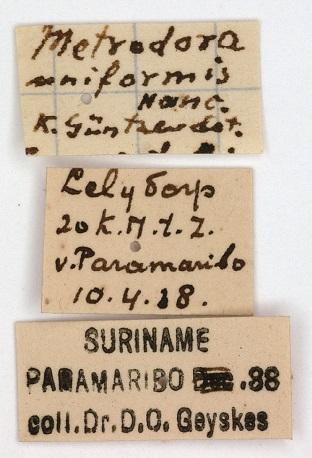 Metrodora
uniformis
Hanc.
K. Günther det.
Lelydorp
20 K.M.t.Z.
v. Paramaribo
10.4.38.
SURINAME
PARAMARIBO .38
coll. Dr. D.C. Geyskes